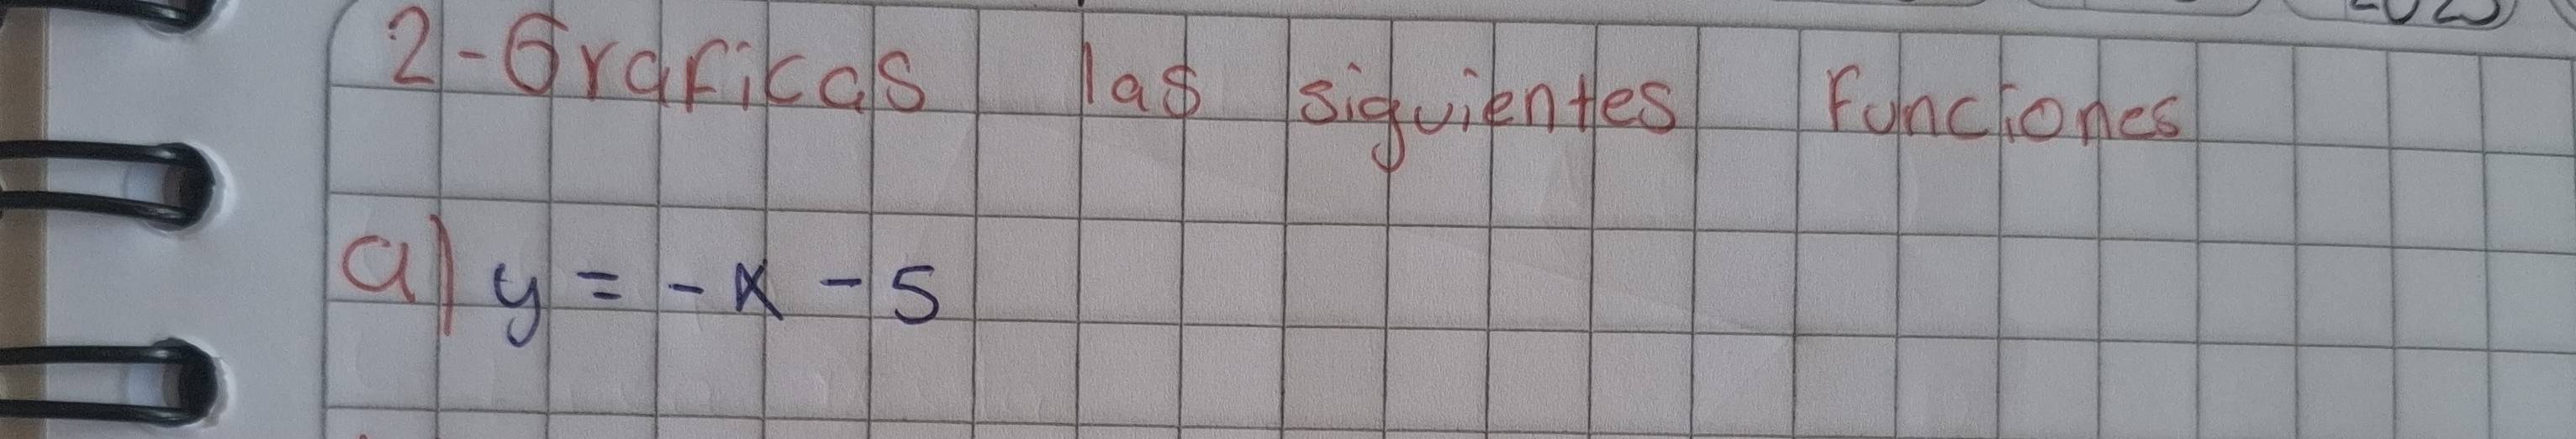 2-Graficas las siguientes funciones
a) y = -x - 5